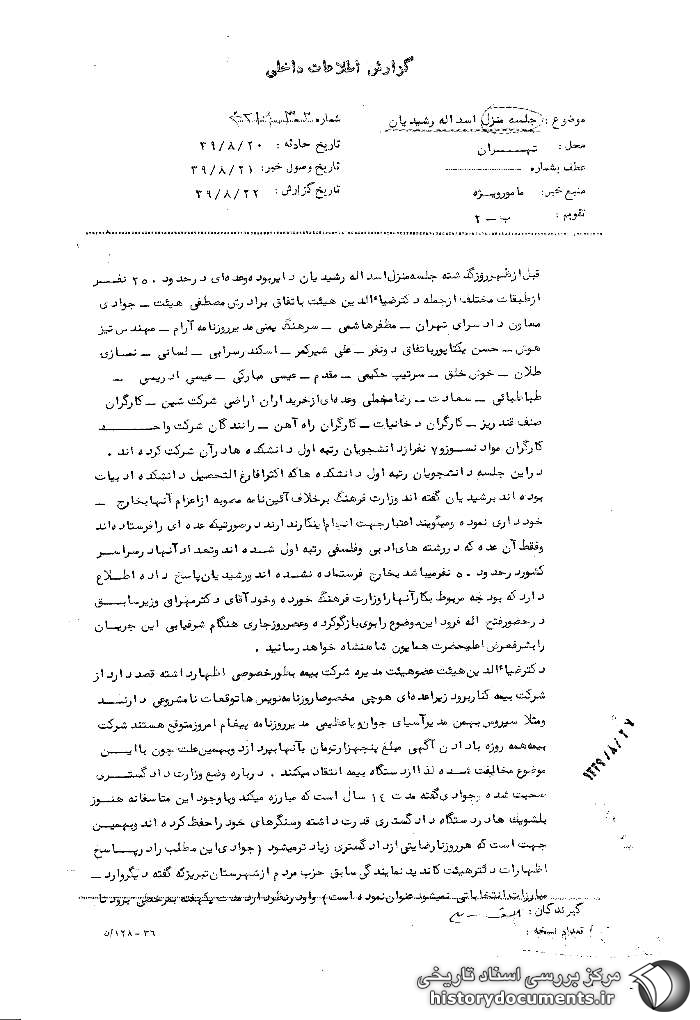 گزارش اطلاعات داخلی
موضوع : جلسه منزل اسداله رشیدیان
شماره
محل : تهــــران
تاریخ حادثه : ۳۹/۸/۲۰
عطف بشماره
تاریخ وصول خبر: ۳۹/۸/۲۱
منبع خبر: مامورویژه
تاریخ گزارش : ۳۹/۸/۲۲
تقویم : ب – ۲
قبل ازظهرروزگذشته جلسه منزل اسداله رشیدیان دایربوده وعده‌ای درحدود ۲۵۰ نفـــر
ازطبقات مختلف ازجمله دکترضیاءالدین هیئت باتفاق برادرش مصطفی هیئت – جوادی
معاون دادسرای تهران – مظفرهاشمی – سرهنگ یمنی مدیرروزنامه آرام – مهندس تیز
هوش – حسن یکتاپورباتفاق دونفر – علی شیرکمر – اسکندرسرابی – لسانی – نصازی
طلان – خوش خلق – سرتیپ حکیمی – مقدم – عیسی مبارکی – عیسی ادریسی –
طباطبائی – سعادت – رضامجملی وعده‌ای ازخریداران اراضی شرکت شین – کارگران
صنف قندریز – کارگران دخانیات – کارگران راه آهن – رانندگان شرکت واحـــــد
کارگران مواد نسوزو۷ نفرازدانشجویان رتبه اول دانشکده هادرآن شرکت کرده اند .
دراین جلسه دانشجویان رتبه اول دانشکده هاکه اکثرافارغ التحصیل دانشکده ادبیات
بوده اند برشیدیان گفته اند وزارت فرهنگ برخلاف آئین‌نامه مصوبه ازاعزام آنهابخارج –
خودداری نموده ومیگویند اعتبارجهت انجام اینکارندارند درصورتیکه عده ای رافرستاده‌اند
وفقط آن عده که دررشته های ادبی وفلسفی رتبه اول شده اند وتعدادآنهادرسراســر
کشوردرحدود ۵۰ نفرمیباشد بخارج فرستاده نشده اند ورشیدیان پاسخ داده اطـــلاع
دارد که بودجه مربوط بکارآنهاراوزارت فرهنگ خورده وخودآقای دکترمهران وزیرسابـــق
درحضورفتح اله فرود این موضوع رابوی بازگوکرده وعصرروزجاری هنگام شرفیابی این جریـــان
رابشرفعرض اعلیحضرت همایون شاهنشاه خواهد رسانید .
دکترضیاءالدین هیئت عضوهیئت مدیره شرکت بیمه بطورخصوصی اظهارداشته قصد داردازر
شرکت بیمه کناربرود زیراعده‌ای هوچی مخصوصاروزنامه‌نویس هاتوقعات نامشروعی دارنـــد
ومثلا سیروس بهمن مدیرآسیای جوان ویاعظیمی مدیرروزنامه پیغام امروزمتوقع هستند شرکت
بیمه‌همه روزه بادادن آگهی مبلغ پنجهزارتومان بآنهابپردازد وبهمین‌علت چون بااین
موضوع مخالفت شده لذاازدستگاه بیمه انتقاد میکنند . درباره وضع وزارت دادگستـــری
صحبت شده وجوادی‌گفته مدت ۱۴ سال است که مبارزه میکند وباوجود این متاسفانه هنــوز
بلشویک هادردستگاه دادگستری قدرت داشته وسنگرهای خودراحفظ کرده اند وبهمیـن
جهت است که هرروزنارضایتی ازدادگستری زیادترمیشود (جوادی این مطلب رادرپـــاسخ
اظهارات دکترهیئت کاندید نمایندگی سابق حزب مردم ازشهرستان تبریزکه گفته دیگروارد –
مبارزات انتخاباتی نمیشود عنوان نموده است) واودرنظردارد مدت یکهفته بمرخصی برود تا
۱۳۳۹/۸/۲۷
گیرندگان :
تعداد نسخه :
۳۶ – ۱۲۸/ن
مرکز بررسی اسناد تاریخی
historydocuments.ir